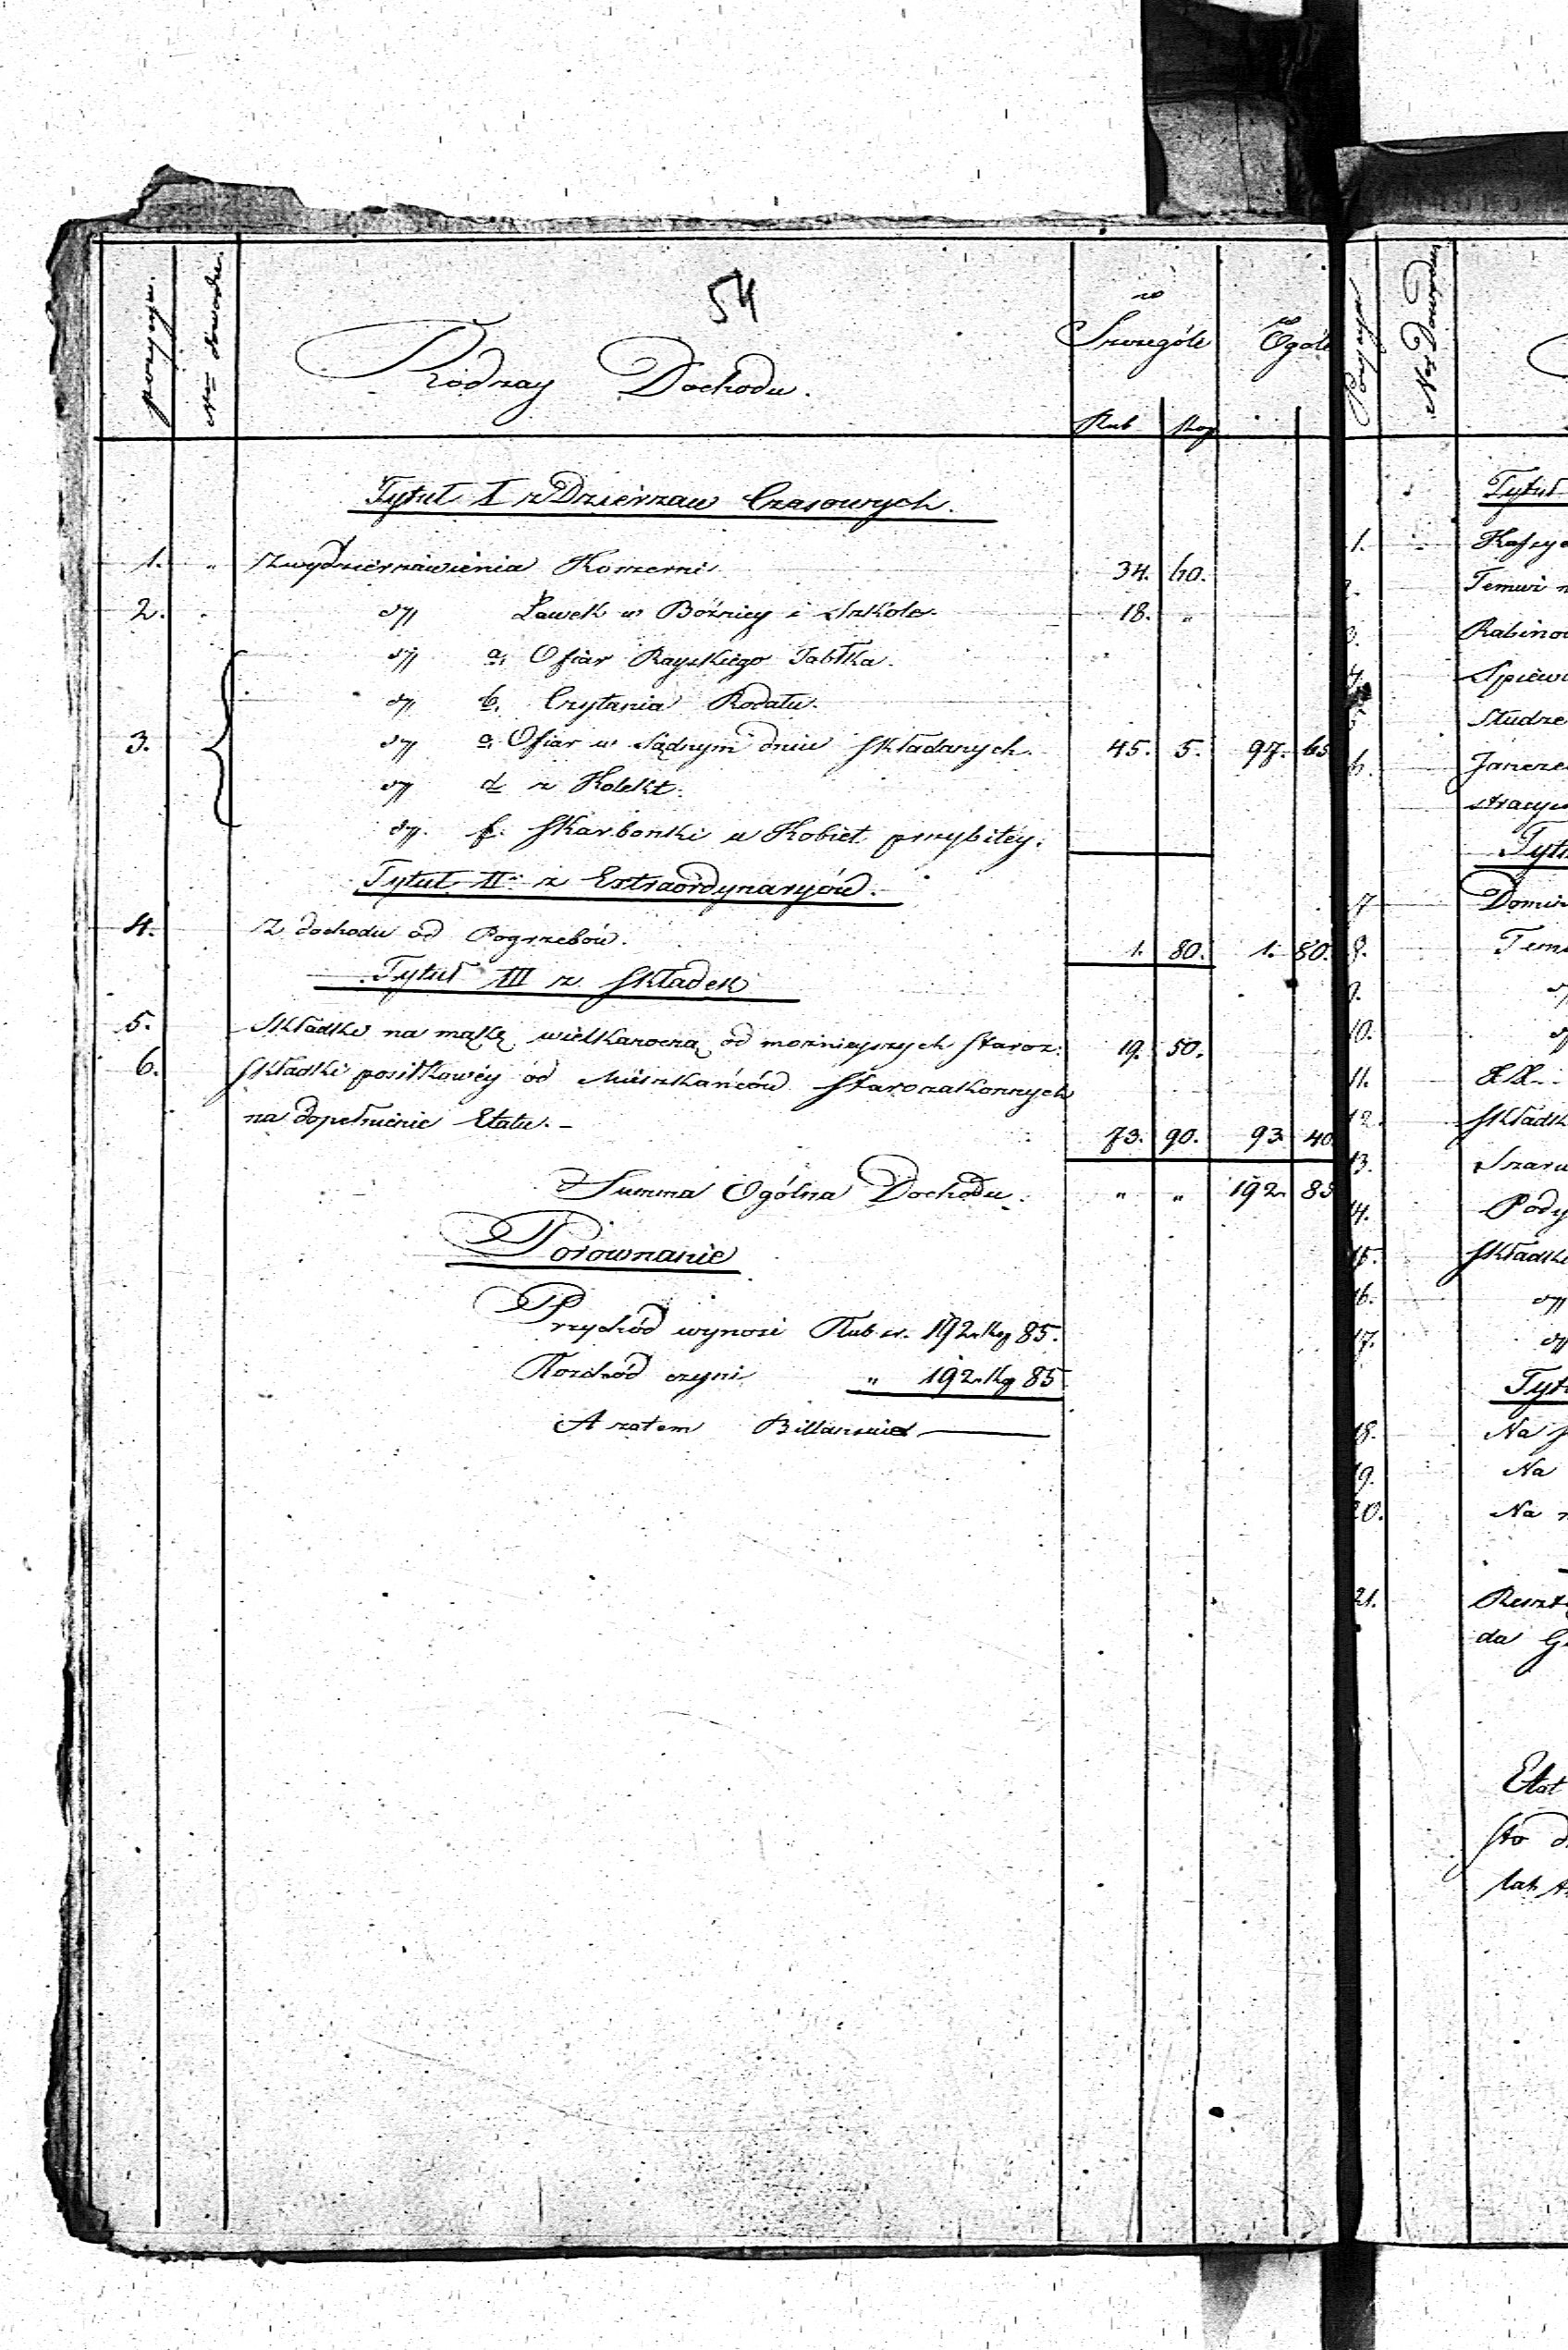 54
pozycya.
Nro dowodu.
Rodzay Dochodu.
w Szczególe
Ogóle
Rub Kop
Tytuł I z Dzierzaw Czasowych.
1. " Z wydzierzawienia Komorni 34. 60.
2. " dtt Ławek w Bóżnicy i Szkole. 18. "
dtt a, Ofiar Rayskiego Jabłka.
dtt b, Czytania Rodału.
3. dtt c, Ofiar w Sądnym dniu składanych. 45. 5. 97. 65
dtt d z Kolekt.
dtt f. Skarbonki u Kobiet przybitéy.
Tytuł II z Extraordynaryów.
4. Z dochodu od Pogrzebów. 1. 80. 1. 80.
Tytuł III z Składek
5. Składki na mąkę wielkanocną od mozniejszych staroz: 19. 50.
6. Składki posiłkowéy od Mieszkańców Starozakonnych
na dopełnienie Etatu. - 73. 90. 93 40.
Summa Ogólna Dochodu. " " 192 85
Porownanie
Przychód wynosi Rub sr. 192 kop 85.
Rozchód czyni " 192 kop 85
A zatem Billansuie
Pozycya
Nro Dowodu
Tytuł
1.
Temuż
Rabinow
Spiewa
6.
stracyi
Tytu
7
8.
9.
10.
11.
12. Składk
13. Szarw
14. Pody
15. Składki
16. dtt
17. dtt
Tyt
18. Na
19. Na
20. Na
21. Reszt
da
Etat
sto